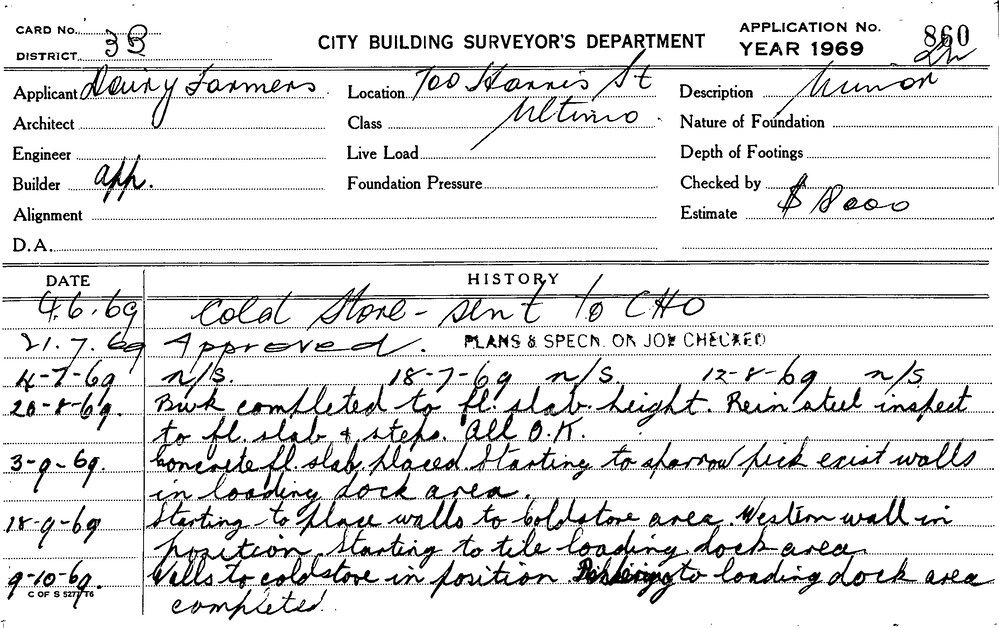 CARD No. 3B
CITY BUILDING SURVEYOR'S DEPARTMENT
APPLICATION No. 860
DISTRICT
YEAR 1969
Applicant Dairy Farmers
Location 700 Harris St
Description Minor
Architect
Class Ultimo
Nature of Foundation
Engineer
Live Load
Depth of Footings
Builder app.
Foundation Pressure
Checked by
Alignment
Estimate $18000
D.A.
DATE HISTORY
4.6.69 Cold Store - sent to CHO
21.7.69 Approved. PLANS & SPECN. ON JOB CHECKED
4-7-69 n/s. 18-7-69 n/s. 12-8-69 n/s.
20-8-69. Bwk completed to fl. slab height. Rein steel inspect
to fl. slab & steps. All O.K.
3-9-69. Concrete fl. slab placed. Starting to sparrow pick exist walls
in loading dock area.
18-9-69 Starting to place walls to Coldstore area. Western wall in
position. Starting to tile loading dock area.
9-10-69. Walls to coldstore in position to loading dock area
C OF S 5277/76
completed.